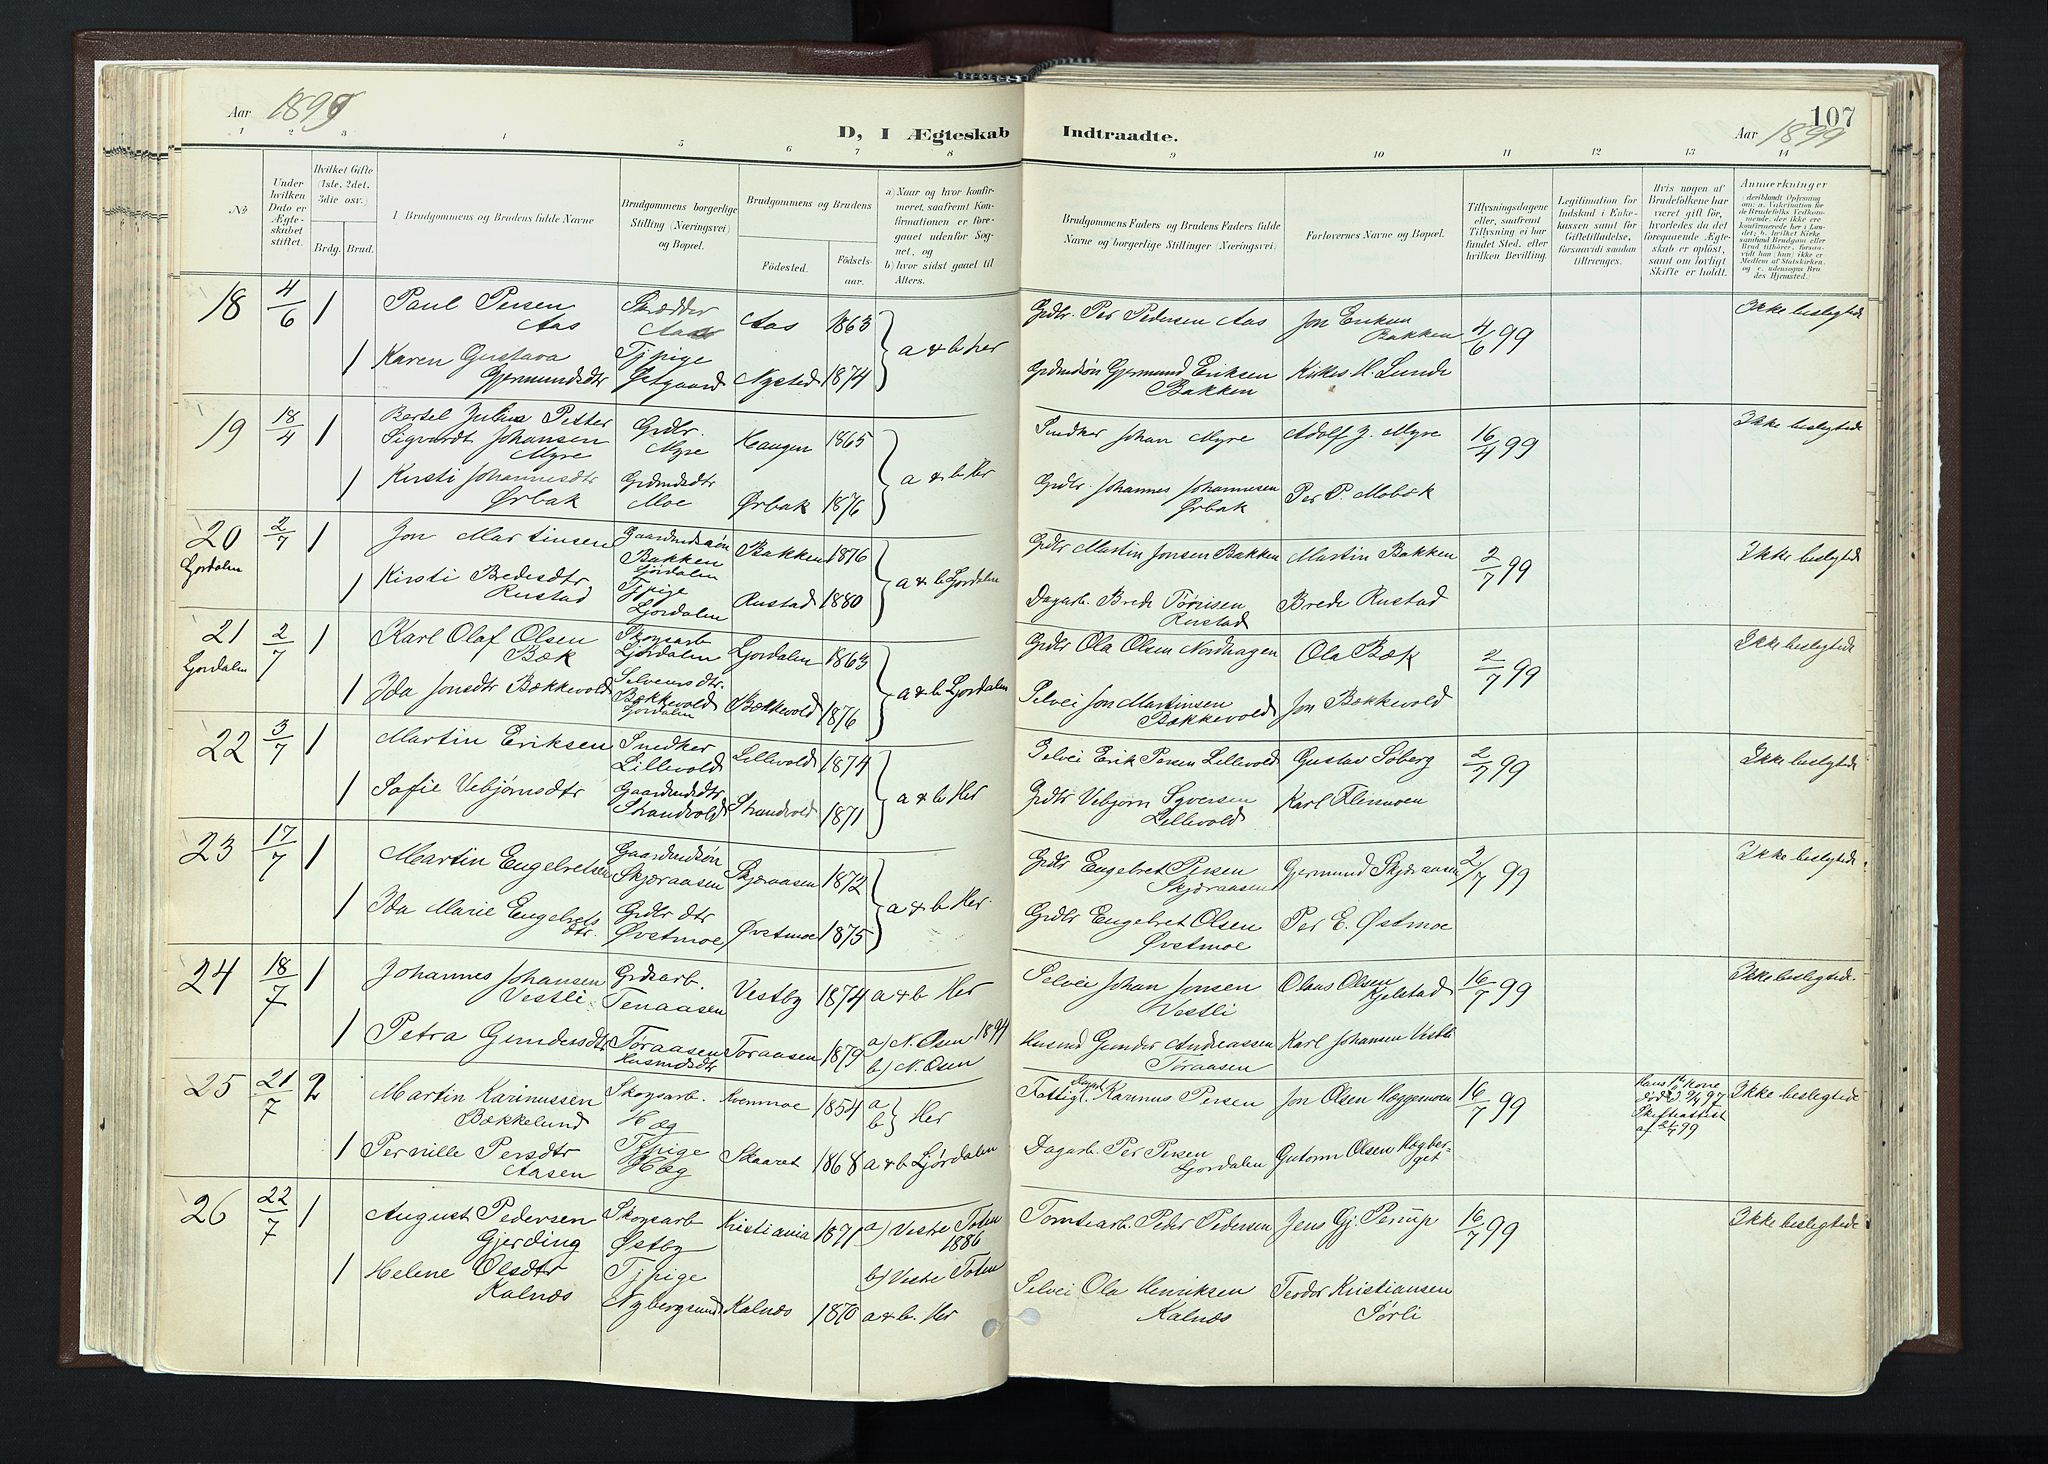 Aar 1899
D, I Ægteskab Indtraadte.
Aar 1899
107
1 2 3 4 5 6 7 8 9 10 11 12 13 14
No
Under hvilken Dato er Ægteskabet stiftet.
Hvilket Gifte (1ste, 2det, 3die osv.)
Brdg. Brud.
I Brudgommens og Brudens fulde Navne
Brudgommens borgerlige Stilling (Næringsvei) og Bopæl.
Brudgommens og Brudens
Födested. Födselsaar.
a) Naar og hvor konfirmeret, saafremt Konfirmationen er foregaaet udenfor Sognet, og
b) hvor sidst gaaet til Alters.
Brudgommens Faders og Brudens Faders fulde Navne og borgerlige Stillinger (Næringsvei)
Forlovernes Navne og Bopæl.
Tillysningsdagene eller, saafremt Tillysning ei har fundet Sted, efter hvilken Bevilling.
Legitimation for Indskud i Enkekassen samt for Giftetilladelse, forsaavidt saadan tiltrænges.
Hvis nogen af Brudefolkene har været gift för, hvorledes da det foregaaende Ægteskab er oplöst, samt om lovligt Skifte er holdt.
Anmerkninger
18 4/6 1 Paul Persen Aas Skrædder Aas 1863 a & b her Grdbr. Per Pedersen Aas Jon Eriksen Bakken 4/6 99 Ikke beslegtede
1 Karen Gustava Gjermundsdtr Tjpige Østgaard Nysted 1874 Grdmdsön Gjermund Eriksen Bakken Kirkes. H. Lunde
19 18/4 1 Bertel Julius Petter Sigvardt Johansen Myre Grdbr. Myre Haugen 1865 a & b Her Snedker Johan Myre Adolf J. Myre 16/4 99 Ikke beslegtede
1 Kirsti Johannesdtr Ørbak Grdmdsdtr Moe Ørbak 1876 Grdbr. Johannes Johannesen Ørbak Per P. Mobæk
20 Ljørdalen 2/7 1 Jon Martinsen Gaardmdssön Bakken Ljørdalen Bakken 1876 a & b Ljørdalen Grdbr Martin Jonsen Bakken Martin Bakken 2/7 99 Ikke beslegtede
1 Kirsti Bredesdtr Rustad Tjpige Ljørdalen Rustad 1880 Dagarb. Brede Tørrisen Rustad Brede Rustad
21 Ljørdalen 2/7 1 Karl Olaf Olsen Bæk Skogsarb Ljørdalen Ljørdalen 1863 a & b Ljørdalen Grdbr Ola Olsen Nordhagen Ola Bæk 2/7 99 Ikke beslegtede
1 Ida Jonsdtr Bækkevold Selveiersdtr. Bækkevold Ljørdalen Bækkevold 1876 Selvei Jon Martinsen Bækkevold Jon Bækkevold
22 3/7 1 Martin Eriksen Snedker Lillevold Lillevold 1874 a & b Her Selvei Erik Persen Lillevold Gustav Søberg 2/7 99 Ikke beslegtede
1 Sofie Vebjørnsdtr Gaardmdsdtr Strandvold Strandvold 1871 Grdbr Vebjørn Syversen Lillevold Karl Flermoen
23 17/7 1 Martin Engebretsen Gaardmdssön Skjæraasen Skjæraasen 1872 a & b Her. Grdbr Engebret Persen Skjæraasen Gjermund Skjæraasen 2/7 99 Ikke beslegtede
1 Ida Marie Engebretsdtr. Grdbr dtr Øvstmoe Øvstmoe 1875 Grdbr Engebret Olsen Øvstmoe Per E. Østmoe
24 18/7 1 Johannes Johansen Vestli Grdsarb. Tenaasen Vestby 1874 a & b Her Selvei Johan Jonsen Vestli Olaus Olsen Kjelstad 16/7 99 Ikke beslegtede.
1 Petra Gundersdtr Toraasen Husmdsdtr Toraasen 1879 a) N. Osen 1894 b) N. Osen Husmd Gunder Andreassen Tøraasen Karl Johansen Vestli
25 21/7 2 Martin Karinussen Bækkelund Skogsarb. Hæg Kvernmoe 1854 a b Her Fattigl. Karinus Persen Jon Olsen Hæggmoen 16/7 99 Hans 1ste Kone død 97 Skifteattest af 99 Ikke beslegtede
1 Pernille Persdtr Aasen Tjpige Hæg Skaaret 1868 a & b Ljørdalen Dagarb. Per Persen Ljørdalen Gutorm Olsen Hægberget
26 22/7 1 August Pedersen Gjerding Skogsarb Østby Kristiania 1871 a) Vestre Toten 1886 b) Vestre Toten Tomtearb. Peder Pedersen Jens Gj. Perup 16/7 99 Ikke beslegtede
1 Helene Olsdtr Kalnæs Tjpige Nybergsund Kalnæs 1870 a & b. Her Selvei Ola Henriksen Kalnæs Teodor Kristiansen Sørli